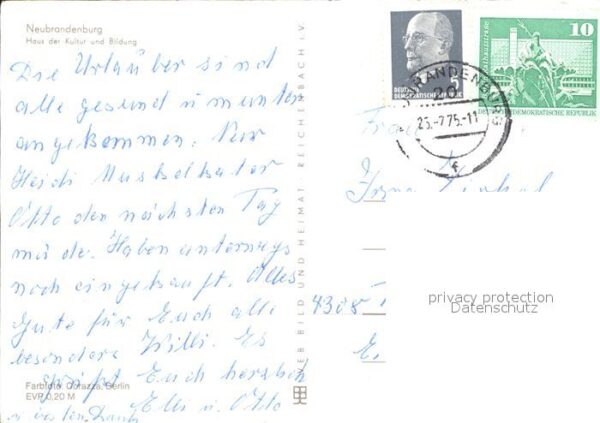 Neubrandenburg
Haus der Kultur und Bildung
Die Urlauber sind
alle gesund u munter
angekommen. Nur
Heidi Muskelkater
Otto den nächsten Tag
müde. Haben unterwegs
noch eingekauft. Alles
Gute für Euch alle
besonders Willi. Es
grüßt Euch herzlich
Elli u. Otto
Farbfoto: Darazza, Berlin
EVP 0,20 M
VEB BILD UND HEIMAT REICHENBACH I. V.
5
DEUTSCHE
DEMOKRATISCHE REPUBLIK
10
DEUTSCHE DEMOKRATISCHE REPUBLIK
BRANDENBURG
20
25.-7.75.-11
Frau
4308
privacy protection
Datenschutz